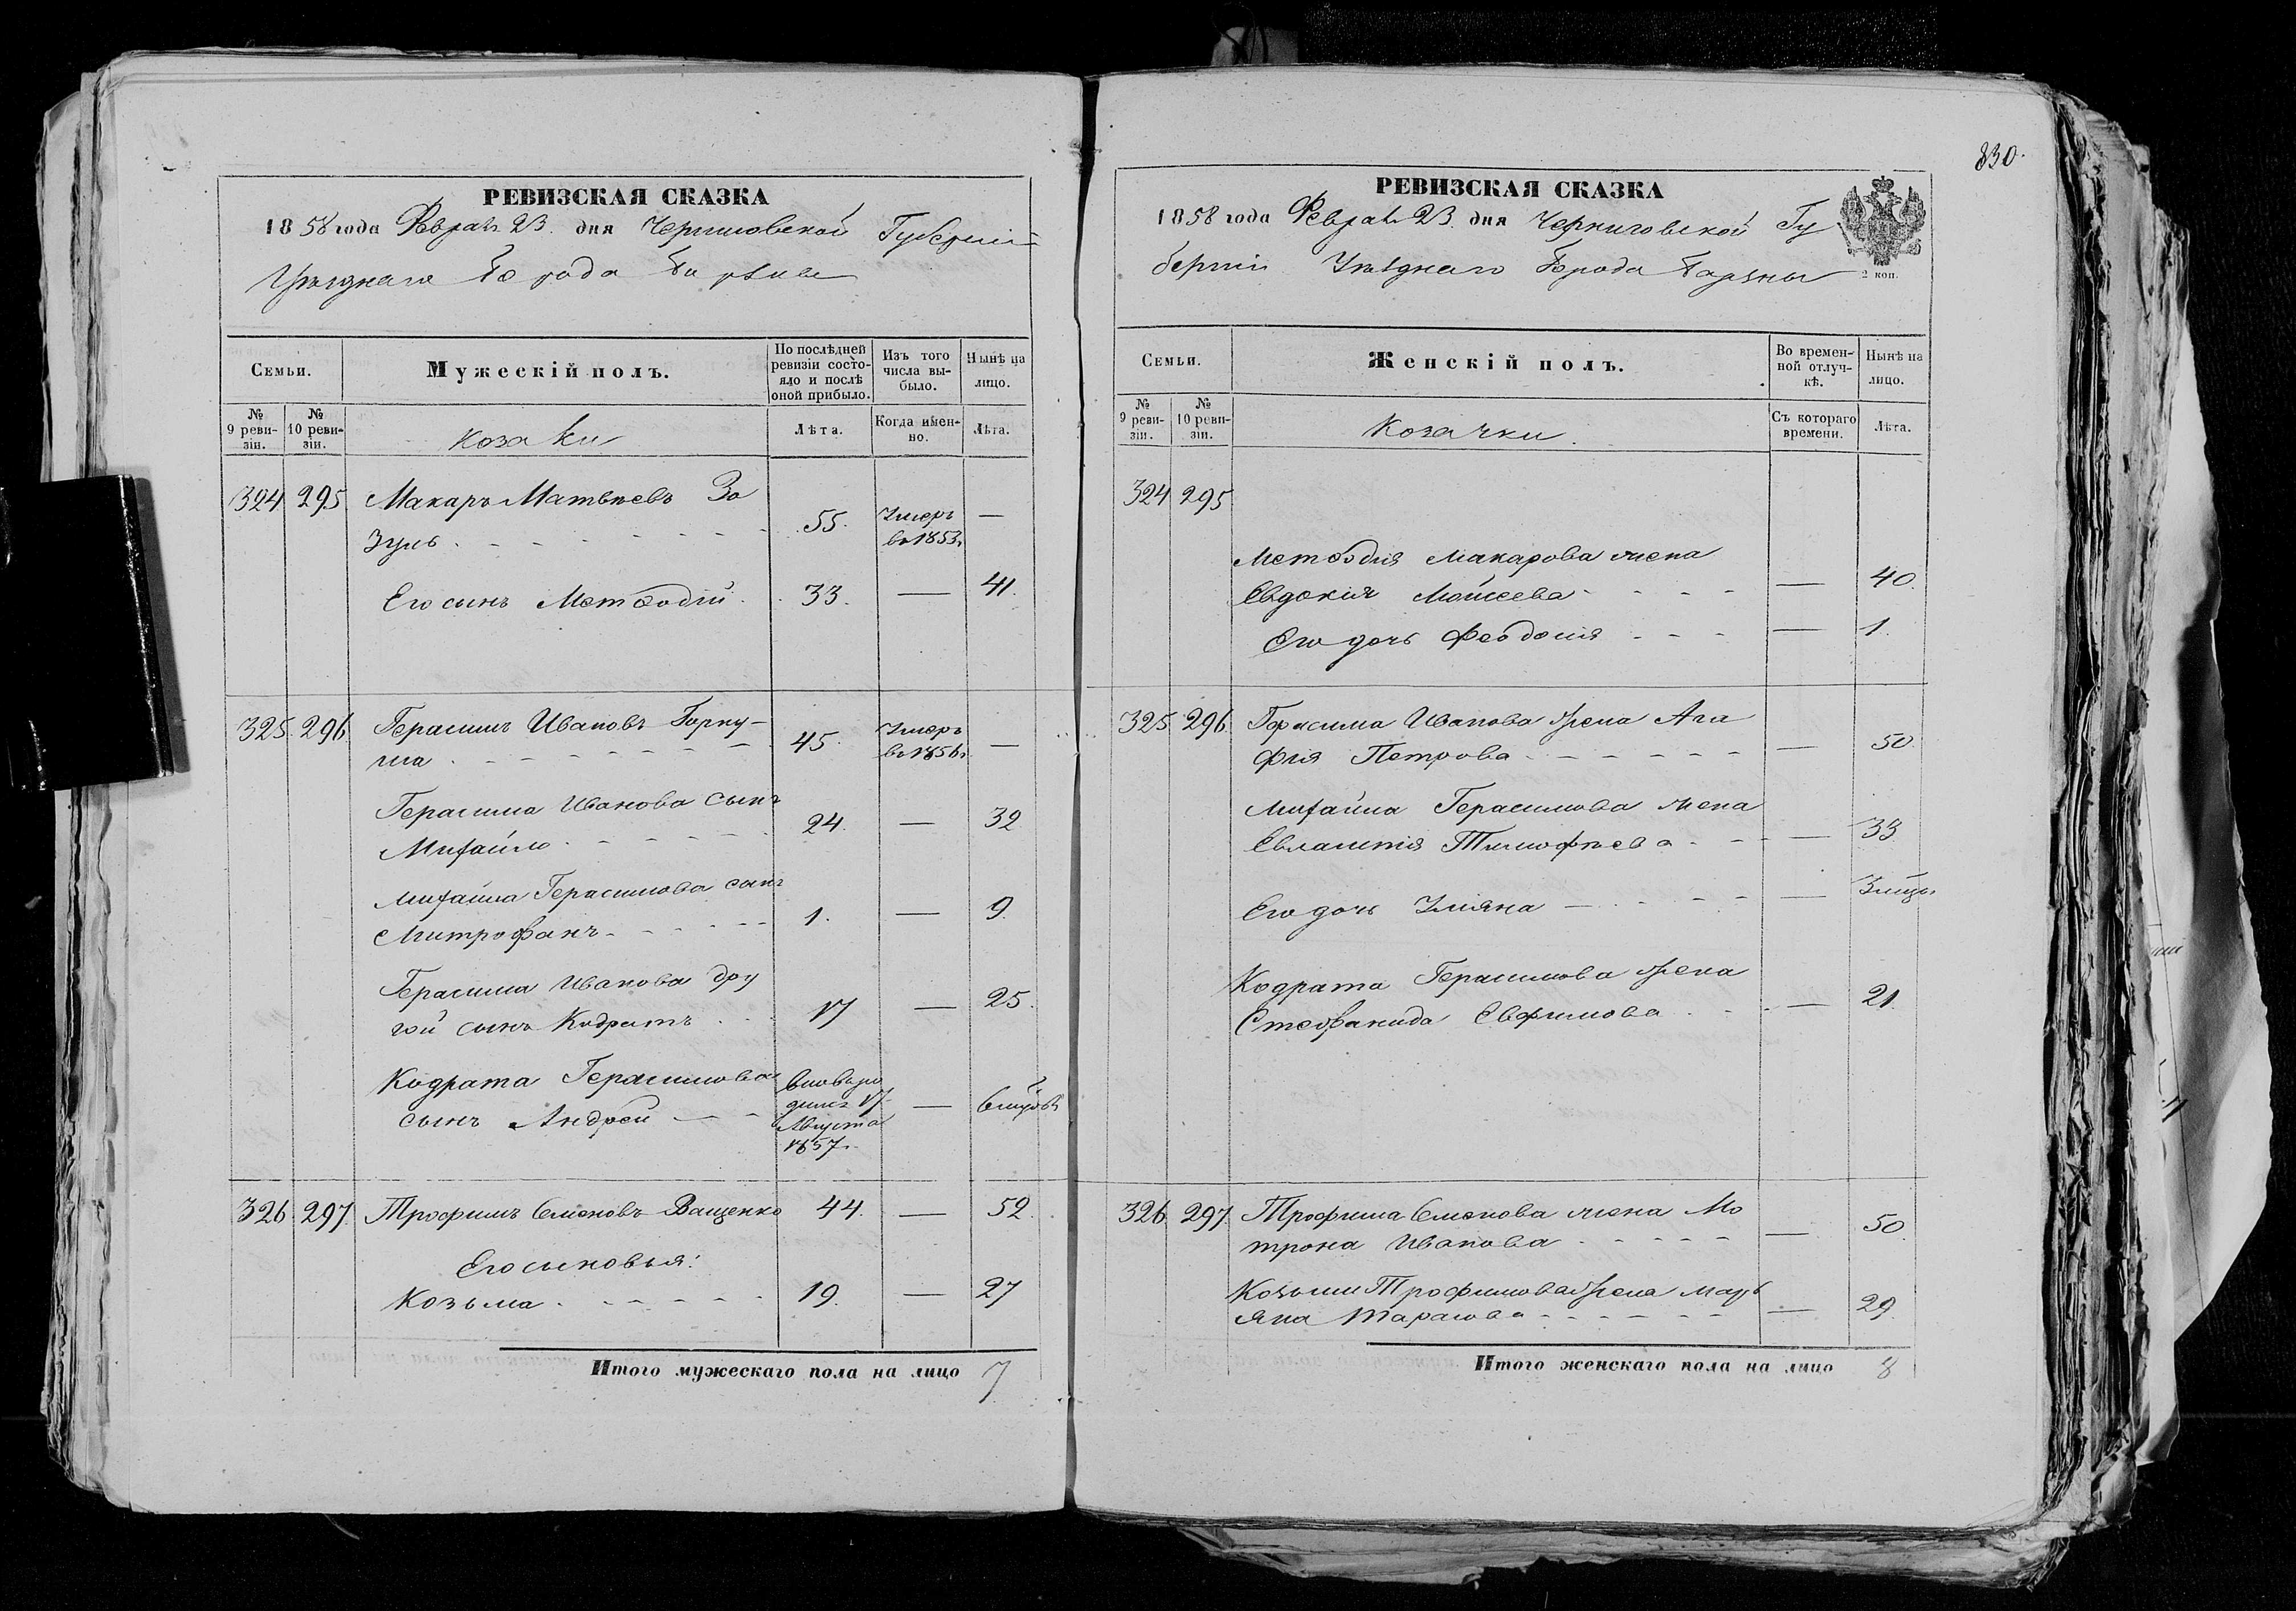 830.
РЕВИЗСКАЯ СКАЗКА
1858 года Феврал 23. дня Черниговской Губерніи
Уѣзднаго Города Борзны
Семьи.
Мужескій полъ.
По послѣдней ревизіи состояло и послѣ оной прибыло.
Изъ того числа выбыло.
Нынѣ на лицо.
№ 9 ревизіи.
№ 10 ревизіи.
Козаки
Лѣта.
Когда именно.
Лѣта.
324 295 Макаръ Матвѣевъ Зо
зуль 55. Умеръ въ 1853г —
Его сынъ Метѳодій 33. — 41.
325 296 Герасимъ Ивановъ Горку-
ша 45. Умеръ въ 1856г —
Герасима Иванова сынъ
Михайло 24. — 32
Михайла Герасимова сынъ
Митрофанъ 1. — 9
Герасима Иванова дру
гой сынъ Кодратъ 17 — 25.
Кодрата Герасимова
сынъ Андрей — вновь ро
дился 17
Августа
1857г. — 6 мцовъ
326 297 Трофимъ Семеновъ Ващенко 44. — 52.
Его сыновья:
Козьма 19. — 27
Итого мужескаго пола на лицо 7
РЕВИЗСКАЯ СКАЗКА
1858 года Феврал 23. дня Черниговской Гу
берніи Уѣзднаго Города Борзны
2 коп.
Семьи.
Женскій полъ.
Во временной отлучкѣ.
Нынѣ на лицо.
№ 9 ревизіи.
№ 10 ревизіи.
Козачки.
Съ котораго времени.
Лѣта.
324 295
Метѳодія Макарова жена
Евдокія Мойсеева — 40.
Его дочь Феодосія — 1.
325 296 Герасима Иванова жена Ага
фія Петрова — 50
Михайла Герасимова жена
Евлампія Тимофѣева — 33
Его дочь Уліяна — 3 мцы
Кодрата Герасимова жена
Стефанида Евфимова — 21.
326 297 Трофима Семенова жена Мо
трона Иванова — 50.
Козьмы Трофимова жена Марь
яна Тарасова — 29.
Итого женскаго пола на лицо 8